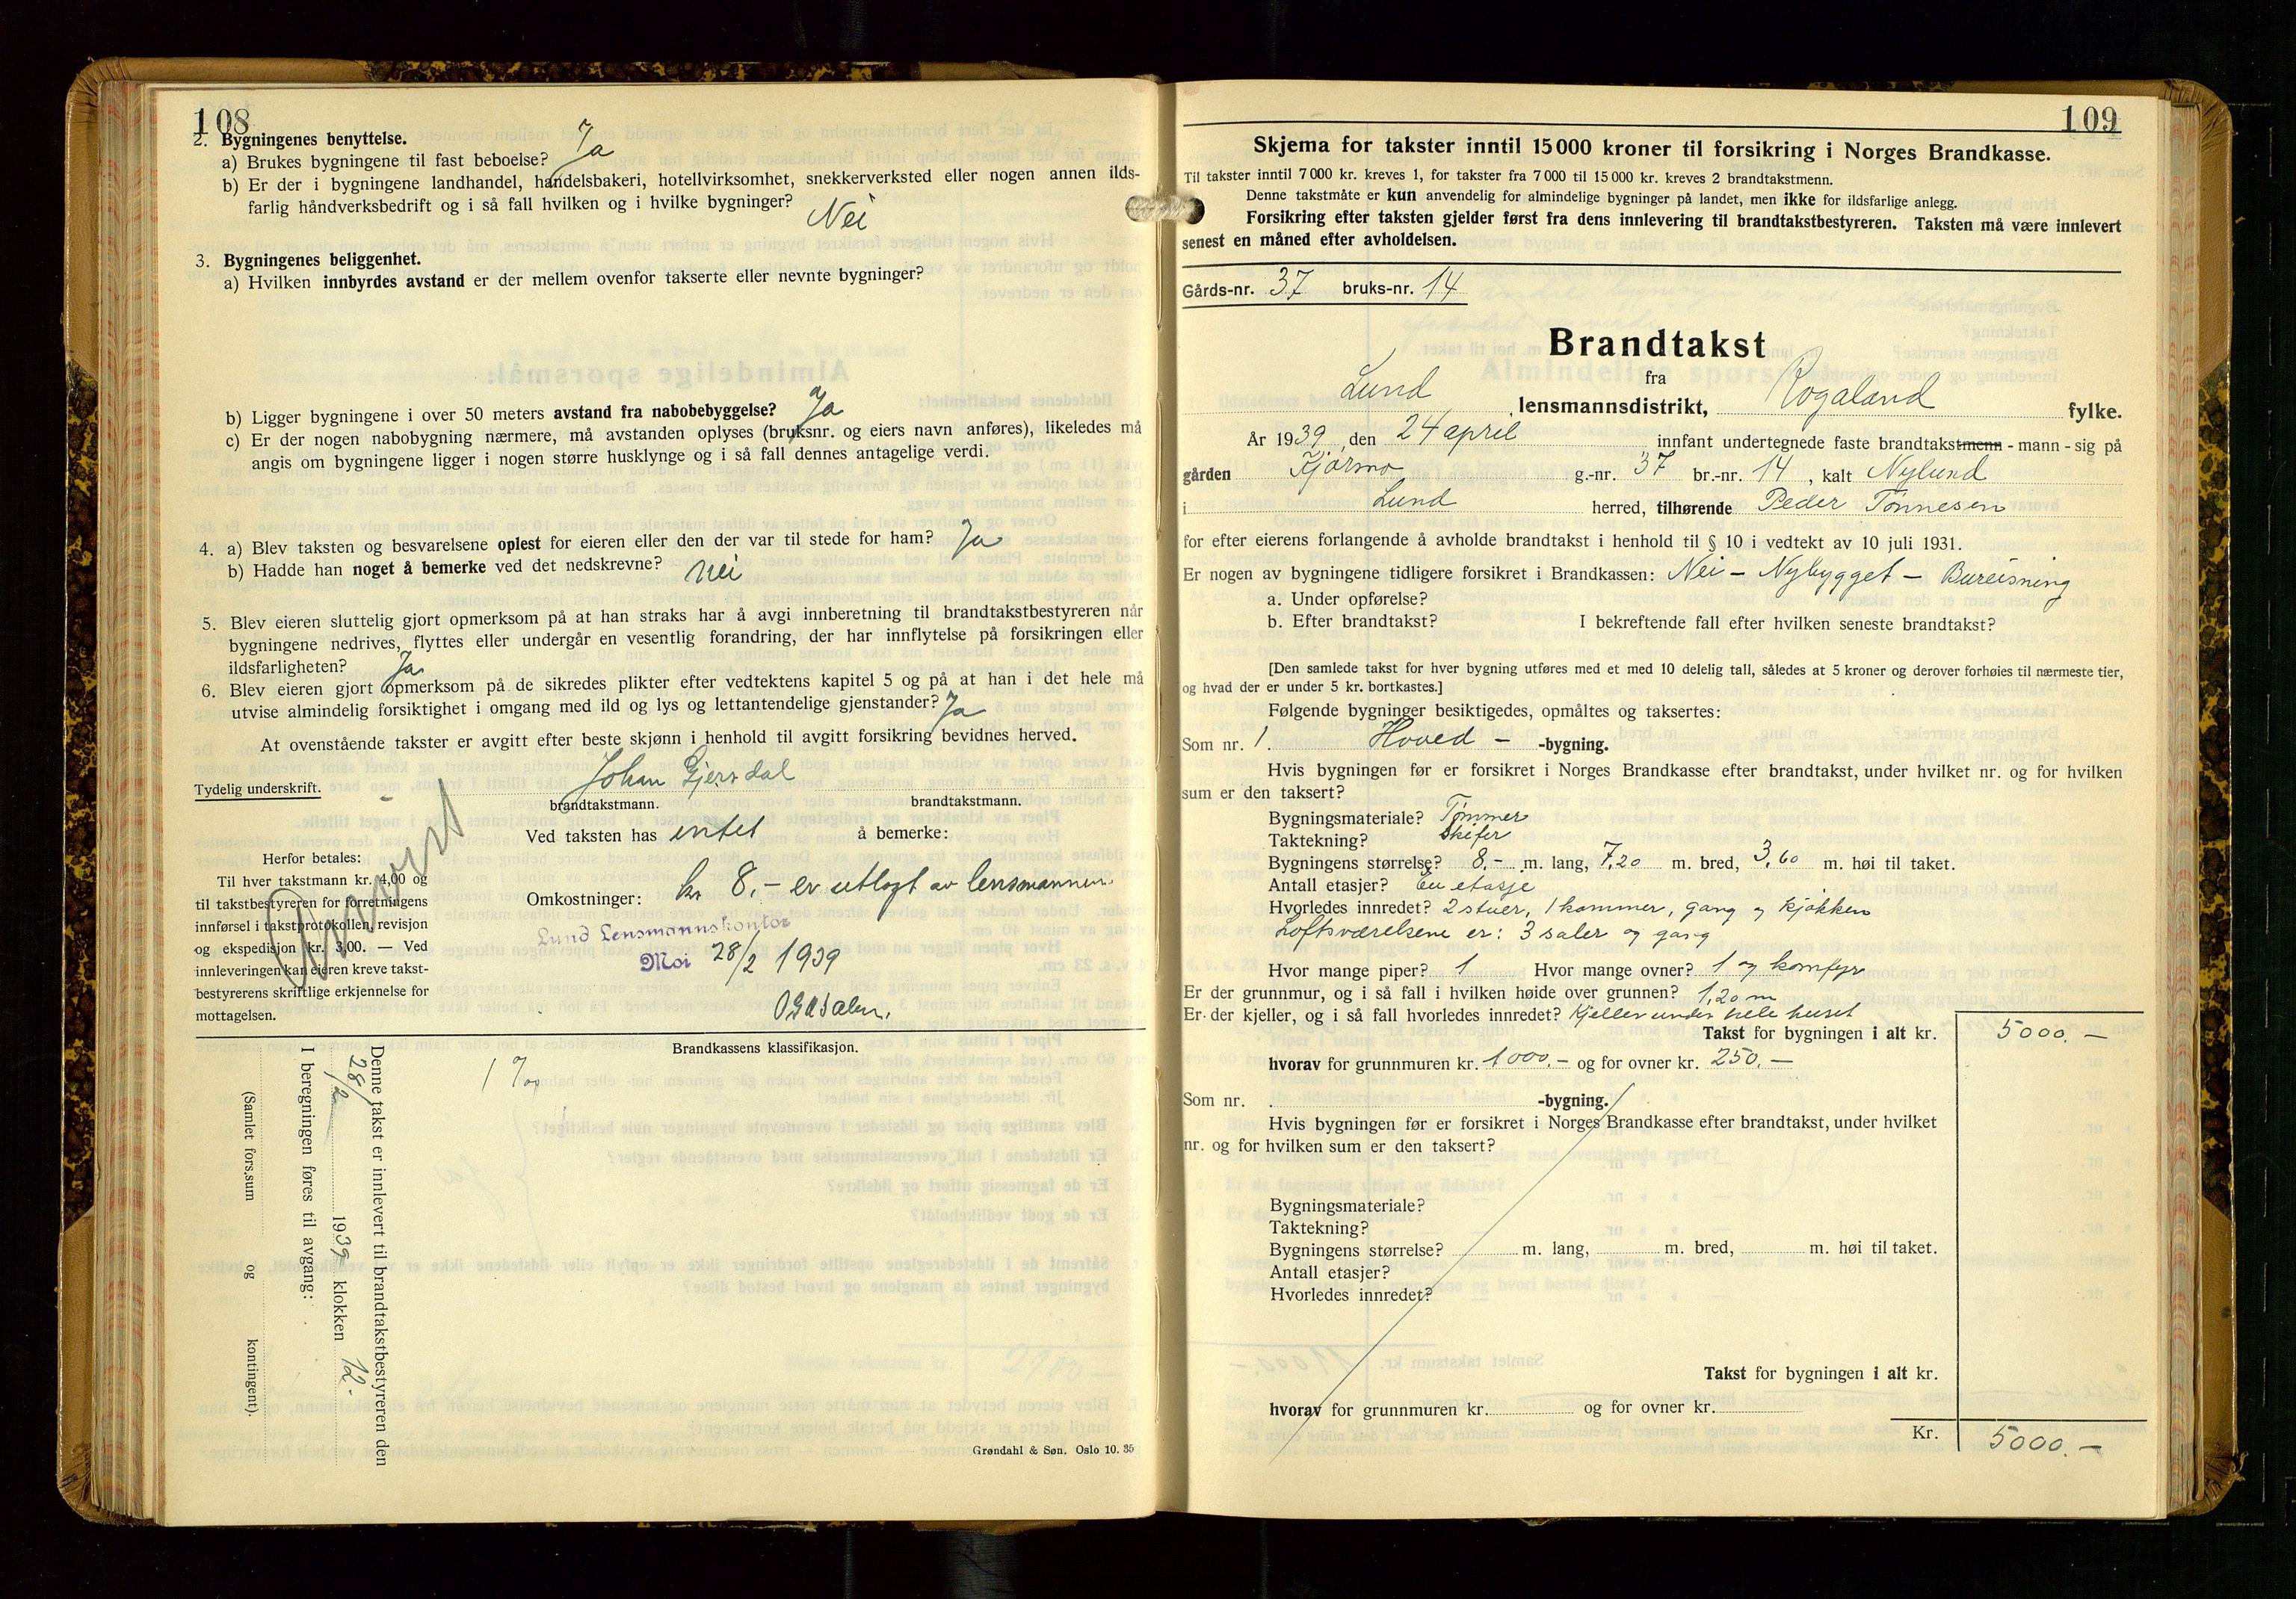 108
2. Bygningenes benyttelse.
a) Brukes bygningene til fast beboelse? Ja
b) Er der i bygningene landhandel, handelsbakeri, hotellvirksomhet, snekkerverksted eller nogen annen ilds-
farlig håndverksbedrift og i så fall hvilken og i hvilke bygninger? Nei
3. Bygningenes beliggenhet.
a) Hvilken innbyrdes avstand er der mellem ovenfor takserte eller nevnte bygninger?
b) Ligger bygningene i over 50 meters avstand fra nabobebyggelse? Ja
c) Er der nogen nabobygning nærmere, må avstanden oplyses (bruksnr. og eiers navn anføres), likeledes må
angis om bygningene ligger i nogen større husklynge og i så fall dennes antagelige verdi.
4. a) Blev taksten og besvarelsene oplest for eieren eller den der var til stede for ham? Ja
b) Hadde han noget å bemerke ved det nedskrevne? Nei
5. Blev eieren sluttelig gjort opmerksom på at han straks har å avgi innberetning til brandtakstbestyreren når
bygningene nedrives, flyttes eller undergår en vesentlig forandring, der har innflytelse på forsikringen eller
ildsfarligheten? Ja
6. Blev eieren gjort opmerksom på de sikredes plikter efter vedtektens kapitel 5 og på at han i det hele må
utvise almindelig forsiktighet i omgang med ild og lys og lettantendelige gjenstander? Ja
At ovenstående takster er avgitt efter beste skjønn i henhold til avgitt forsikring bevidnes herved.
Tydelig underskrift. Johan Gjersdal
brandtakstmann. brandtakstmann.
Ved taksten has intet å bemerke:
Herfor betales:
Til hver takstmann kr. 4,00 og
til takstbestyreren for forretningens
innførsel i takstprotokollen, revisjon
og ekspedisjon kr. 3,00. — Ved
innleveringen kan eieren kreve takst-
bestyrerens skriftlige erkjennelse for
mottagelsen.
Omkostninger: kr 8,- er utlagt av lensmannen.
Lund Lensmannskontor
Moi 28/2 1939
Brandkassens klassifikasjon.
1 ‰
Denne takst er innlevert til brandtakstbestyreren den
28/2 1939 klokken 12.
I beregningen føres til avgang:
(Samlet fors.sum og kontingent).
Grøndahl & Søn. Oslo 10. 35
109
Skjema for takster inntil 15000 kroner til forsikring i Norges Brandkasse.
Til takster inntil 7000 kr. kreves 1, for takster fra 7000 til 15000 kr. kreves 2 brandtakstmenn.
Denne takstmåte er kun anvendelig for almindelige bygninger på landet, men ikke for ildsfarlige anlegg.
Forsikring efter taksten gjelder først fra dens innlevering til brandtakstbestyreren. Taksten må være innlevert
senest en måned efter avholdelsen.
Gårds-nr. 37 bruks-nr. 14
Brandtakst
fra
Lund lensmannsdistrikt, Rogaland fylke.
År 1939, den 24 april innfant undertegnede faste brandtakstmenn - mann - sig på
gården Kjørmo g.-nr. 37 br.-nr. 14, kalt Nylund
i Lund herred, tilhørende Peder Tønnesen
for efter eierens forlangende å avholde brandtakst i henhold til § 10 i vedtekt av 10 juli 1931.
Er nogen av bygningene tidligere forsikret i Brandkassen: Nei - Nybygget - Bureisning
a. Under opførelse?
b. Efter brandtakst? I bekreftende fall efter hvilken seneste brandtakst?
[Den samlede takst for hver bygning utføres med et med 10 delelig tall, således at 5 kroner og derover forhøies til nærmeste tier,
og hvad der er under 5 kr. bortkastes.]
Følgende bygninger besiktigedes, opmåltes og taksertes:
Som nr. 1. Hoved - -bygning.
Hvis bygningen før er forsikret i Norges Brandkasse efter brandtakst, under hvilket nr. og for hvilken
sum er den taksert?
Bygningsmateriale? Tømmer
Taktekning? Skifer
Bygningens størrelse? 8,- m. lang, 7,20 m. bred, 3,60 m. høi til taket.
Antall etasjer? En etasje
Hvorledes innredet? 2 stuer, 1 kammer, gang og kjøkken
Loftsværelsene er: 3 saler og gang
Hvor mange piper? 1 Hvor mange ovner? 1 og komfyr
Er der grunnmur, og i så fall i hvilken høide over grunnen? 1,20 m
Er der kjeller, og i så fall hvorledes innredet? Kjeller under hele huset
Takst for bygningen i alt kr. 5000.-
hvorav for grunnmuren kr. 1000.- og for ovner kr. 250.-
Som nr. -bygning.
Hvis bygningen før er forsikret i Norges Brandkasse efter brandtakst, under hvilket
nr. og for hvilken sum er den taksert?
Bygningsmateriale?
Taktekning?
Bygningens størrelse? m. lang, m. bred, m. høi til taket.
Antall etasjer?
Hvorledes innredet?
Takst for bygningen i alt kr.
hvorav for grunnmuren kr. og for ovner kr.
Kr. 5000.-